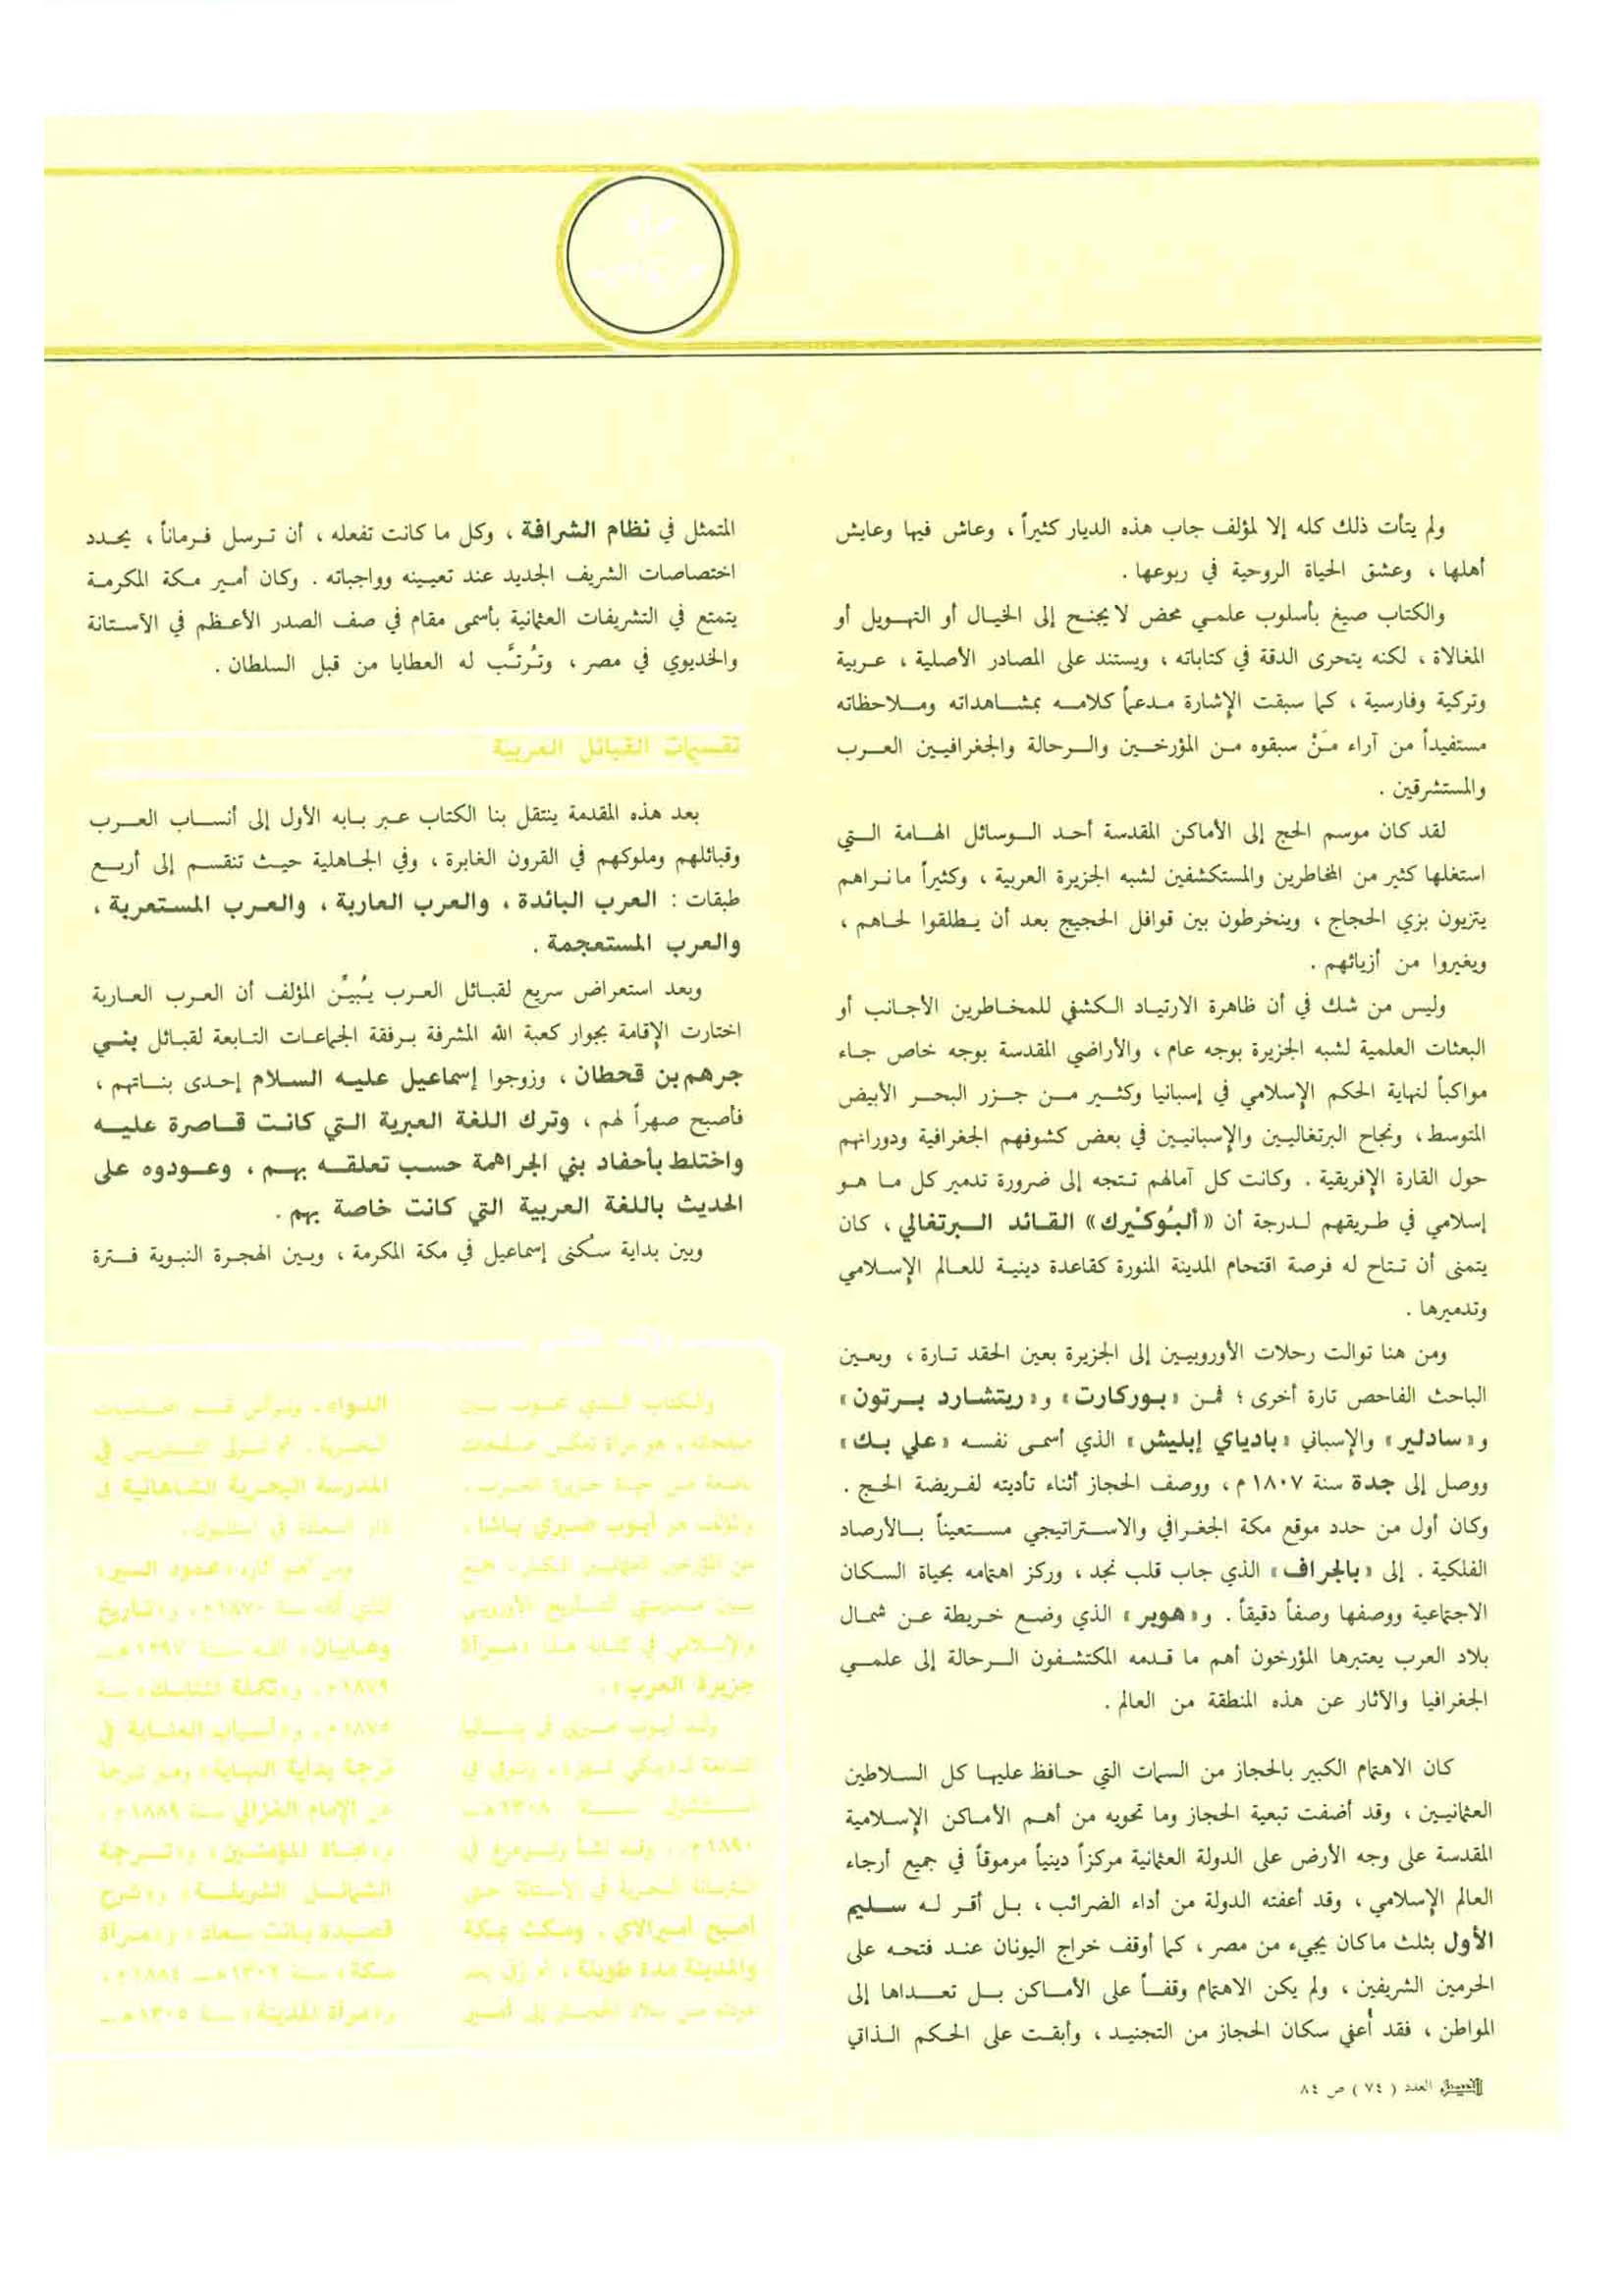 ولم يتأت ذلك كله إلا لمؤلف جاب هذه الديار كثيراً ، وعاش فيها وعايش
أهلها ، وعشق الحياة الروحية في ربوعها .
والكتاب صيغ بأسلوب علمي محض لا يجنح إلى الخيال أو التهويل أو
المغالاة ، لكنه يتحرى الدقة في كتاباته ، ويستند على المصادر الأصلية ، عربية
وتركية وفارسية ، كما سبقت الإشارة مدعماً كلامه بمشاهداته وملاحظاته
مستفيداً من آراء مَنْ سبقوه من المؤرخين والرحالة والجغرافيين العرب
والمستشرقين .
لقد كان موسم الحج إلى الأماكن المقدسة أحد الوسائل الهامة التي
استغلها كثير من المخاطرين والمستكشفين لشبه الجزيرة العربية ، وكثيراً ما نراهم
يتزيون بزي الحجاج ، وينخرطون بين قوافل الحجيج بعد أن يطلقوا لحاهم ،
ويغيروا من أزيائهم .
وليس من شك في أن ظاهرة الارتياد الكشفي للمخاطرين الأجانب أو
البعثات العلمية لشبه الجزيرة بوجه عام ، والأراضي المقدسة بوجه خاص جاء
مواكباً لنهاية الحكم الإسلامي في إسبانيا وكثير من جزر البحر الأبيض
المتوسط ، ونجاح البرتغاليين والإسبانيين في بعض كشوفهم الجغرافية ودورانهم
حول القارة الإفريقية . وكانت كل آمالهم تتجه إلى ضرورة تدمير كل ما هو
إسلامي في طريقهم لدرجة أن «ألبُوكيْرك» القائد البرتغالي ، كان
يتمنى أن تتاح له فرصة اقتحام المدينة المنورة كقاعدة دينية للعالم الإسلامي
وتدميرها .
ومن هنا توالت رحلات الأوروبيين إلى الجزيرة بعين الحقد تارة ، وبعين
الباحث الفاحص تارة أخرى ؛ فمن «بوركارت» و«ريتشارد برتون»
و«سادلير» والإسباني «بادياي إبليش» الذي أسمى نفسه «علي بك»
ووصل إلى جدة سنة ١٨٠٧ م ، ووصف الحجاز أثناء تأديته لفريضة الحج .
وكان أول من حدد موقع مكة الجغرافي والاستراتيجي مستعيناً بالأرصاد
الفلكية . إلى «بالجراف» الذي جاب قلب نجد ، وركز اهتمامه بحياة السكان
الاجتماعية ووصفها وصفاً دقيقاً . و«هوبر» الذي وضع خريطة عن شمال
بلاد العرب يعتبرها المؤرخون أهم ما قدمه المكتشفون الرحالة إلى علمي
الجغرافيا والآثار عن هذه المنطقة من العالم .
كان الاهتمام الكبير بالحجاز من السمات التي حافظ عليها كل السلاطين
العثمانيين ، وقد أضفت تبعية الحجاز وما تحويه من أهم الأماكن الإسلامية
المقدسة على وجه الأرض على الدولة العثمانية مركزاً دينياً مرموقاً في جميع أرجاء
العالم الإسلامي ، وقد أعفته الدولة من أداء الضرائب ، بل أقر له سليم
الأول بثلث ماكان يجيء من مصر ، كما أوقف خراج اليونان عند فتحه على
الحرمين الشريفين ، ولم يكن الاهتمام وقفاً على الأماكن بل تعداها إلى
المواطن ، فقد أُعفي سكان الحجاز من التجنيد ، وأبقت على الحكم الذاتي
المتمثل في نظام الشرافة ، وكل ما كانت تفعله ، أن ترسل فرماناً ، يحدد
اختصاصات الشريف الجديد عند تعيينه وواجباته . وكان أمير مكة المكرمة
يتمتع في التشريفات العثمانية بأسمى مقام في صف الصدر الأعظم في الآستانة
والخديوي في مصر ، وتُرتَّب له العطايا من قبل السلطان .
تقسيمات القبائل العربية
بعد هذه المقدمة ينتقل بنا الكتاب عبر بابه الأول إلى أنساب العرب
وقبائلهم وملوكهم في القرون الغابرة ، وفي الجاهلية حيث تنقسم إلى أربع
طبقات : العرب البائدة ، والعرب العاربة ، والعرب المستعربة ،
والعرب المستعجمة .
وبعد استعراض سريع لقبائل العرب يُبيِّن المؤلف أن العرب العاربة
اختارت الإقامة بجوار كعبة الله المشرفة برفقة الجماعات التابعة لقبائل بني
جرهم بن قحطان ، وزوجوا إسماعيل عليه السلام إحدى بناتهم ،
فأصبح صهراً لهم ، وترك اللغة العبرية التي كانت قاصرة عليه
واختلط بأحفاد بني الجراهمة حسب تعلقه بهم ، وعودوه على
الحديث باللغة العربية التي كانت خاصة بهم .
وبين بداية سُكنى إسماعيل في مكة المكرمة ، وبين الهجرة النبوية فترة
والكتاب الذي نجوب بين
صفحاته ، هو مرآة تعكس صفحات
والمؤلف هو أيوب صبري باشا ،
من المؤرخين العثمانيين الكبار ، جمع
بين مدرستي التاريخ الأوروبي
والإسلامي في كتابه هذا «مرآة
جزيرة العرب» .
أصبح أميرالاي ، ومكث بمكة
والمدينة مدة طويلة ، ثم رقي بعد
عودته من بلاد الحجاز إلى أمير
اللواء ، وترأس قسم المحاسبات
البحرية ، ثم تولى التدريس في
المدرسة البحرية الشاهانية في
دار السعادة في استانبول .
ومن أهم آثاره «محمود السير»
الذي ألفه سنة ١٨٧٠ م ، و«تاريخ
وهابيان» ألفه سنة ١٢٩٧ هـ ـ
١٨٧٩ م ، و«تكملة المناسك» سنة
١٨٧٥ م ، و«أسباب العناية في
ترجمة بداية النهاية» وهو ترجمة
عن الإمام الغزالي سنة ١٨٨٩ م ،
و«نجاة المؤمنين» و«ترجمة
الشمائل الشريفة» و«شرح
قصيدة بانت سعاد» و«مرآة
مكة» سنة ١٣٠٢ هـ ـ ١٨٨٤ م ،
و«مرآة المدينة» سنة ١٣٠٥ هـ ـ
الفيصل العدد ( ٧٤ ) ص ٨٤